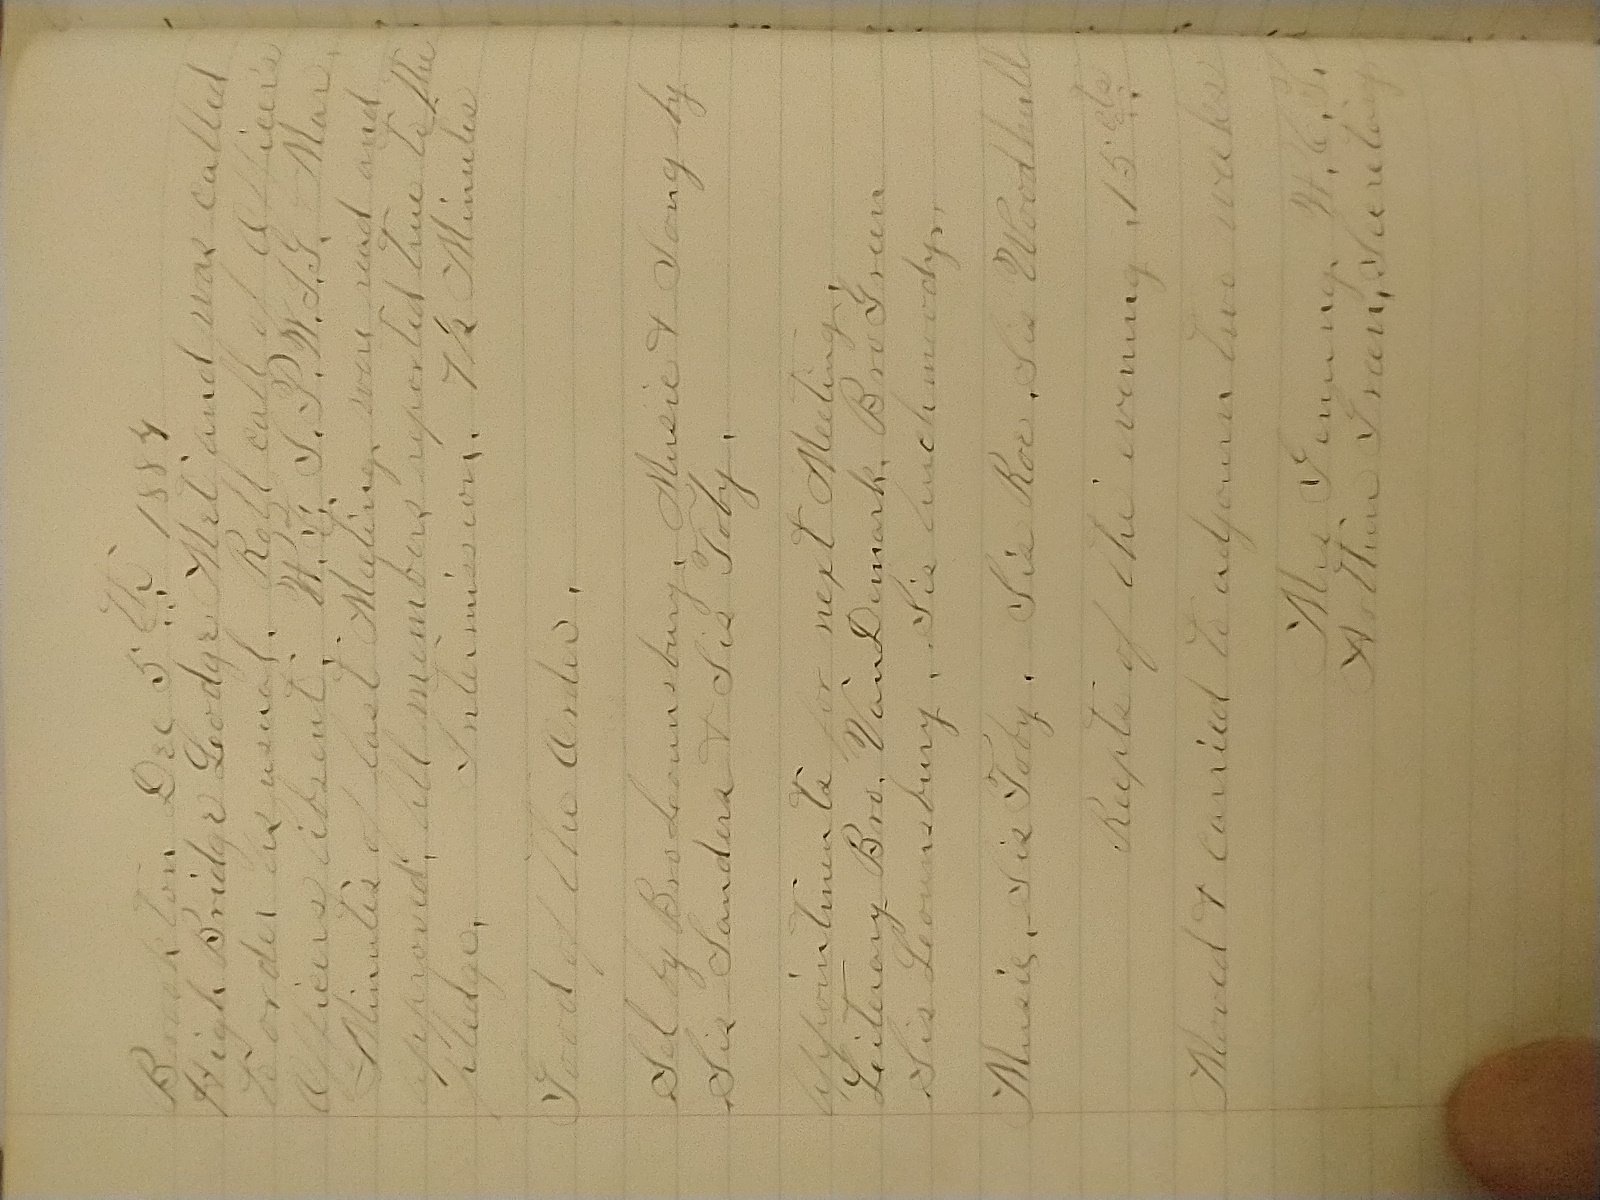 Brockton Dec 5th 1884
High Bridge Lodge Met and was called
to order as usual. Roll call of officers
Officers absent. W.G. I.P.W.S.G. Mar.
Minutes of last Meeting was read and
approved, all members reported true to the
pledge. Intermission. 7½ Minutes
Good of the Order.
Sel by Bro Lounsbury, Music & Song by
Sis Sanders & Sis Toby.
Appointments for next Meeting,
Literary Bro. VanDemark, Bro Green
Sis Lounsbury, Sis Auchmoody,
Music, Sis Toby. Sis Roe. Sis Woodhull
Recpts of the evening .15 cts
Moved & carried to adjourn two weeks
W.C.T.
Secretary